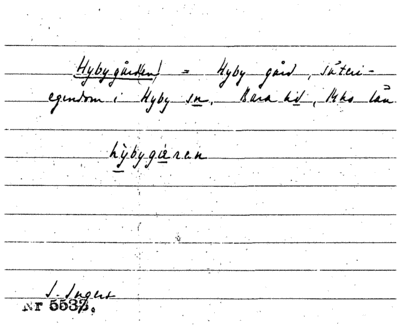 Hybygård(en) = Hyby gård, säteri-
egendom i Hyby sn. Bara hd, Mhs län
hybygæren
S. Ingers
Nr 5532.